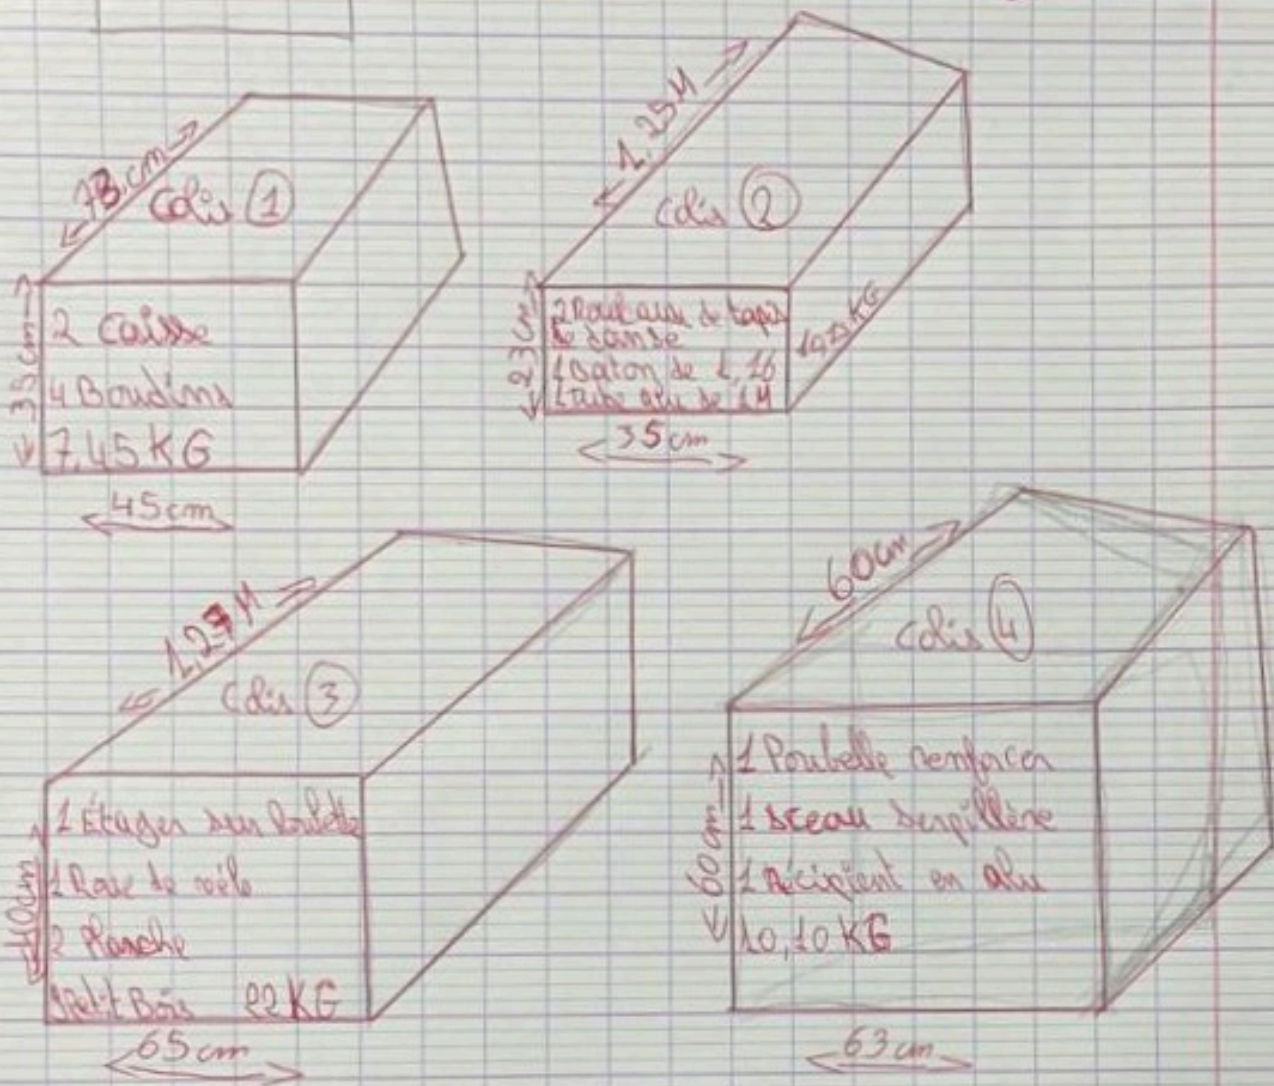 78 cm
Colis 1
35 cm
2 Caisse
4 Boudins
7,45 KG
45 cm
1,25 M
Colis 2
23 cm
2 Rouleaux de tapis
de danse
1 Baton de 1,16
1 Tube alu de 1M
KG
35 cm
1,27 M
Colis 3
40 cm
1 Étager sur Roulette
1 Roue de vélo
2 Planche
Petit Bois 22 KG
65 cm
60 cm
Colis 4
60 cm
1 Poubelle renforcer
1 sceau serpillère
1 Récipient en alu
10,10 KG
63 cm